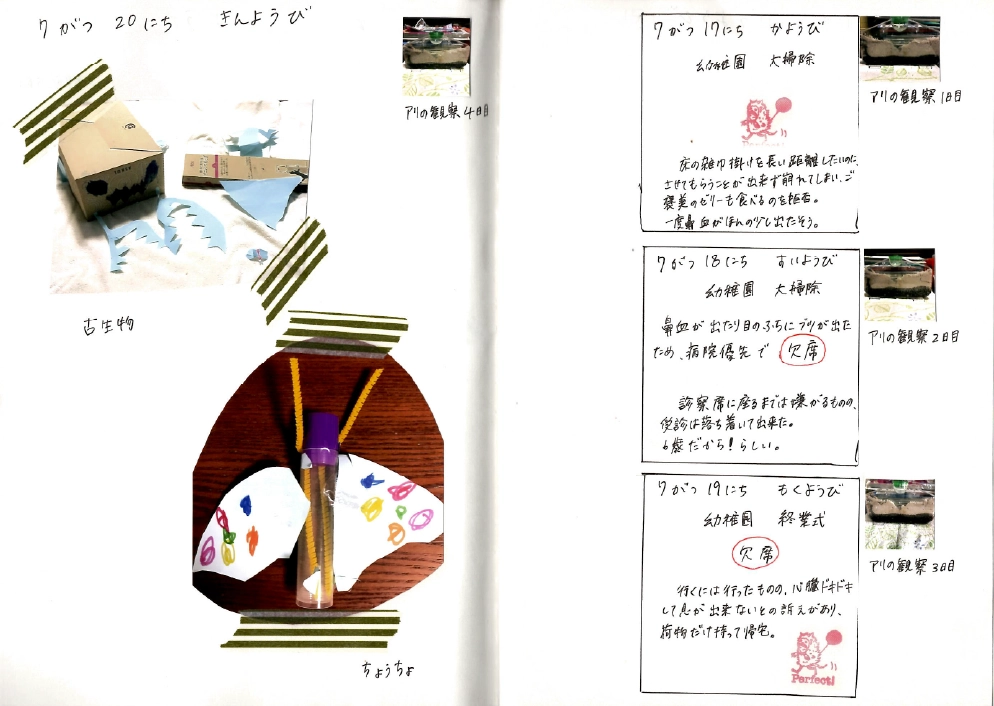 7がつ 20にち きんようび
アリの観察4日目
古生物
ちょうちょ
7がつ 17にち かようび
幼稚園 大掃除
Perfect!
床の雑巾掛けを長い距離したいのに、
させてもらうことが出来ず崩れてしまい、ご
褒美のゼリーも食べるのを拒否。
一度鼻血がほんの少し出たそう。
アリの観察1日目
7がつ 18にち すいようび
幼稚園 大掃除
鼻血が出たり目のふちにブツが出た
ため、病院優先で 欠席
診察席に座るまでは嫌がるものの、
受診は落ち着いて出来た。
6歳だから!らしい。
アリの観察2日目
7がつ 19にち もくようび
幼稚園 終業式
欠席
行くには行ったものの、心臓ドキドキ
して息が出来ないとの訴えがあり、
荷物だけ持って帰宅。
Perfect!
アリの観察3日目